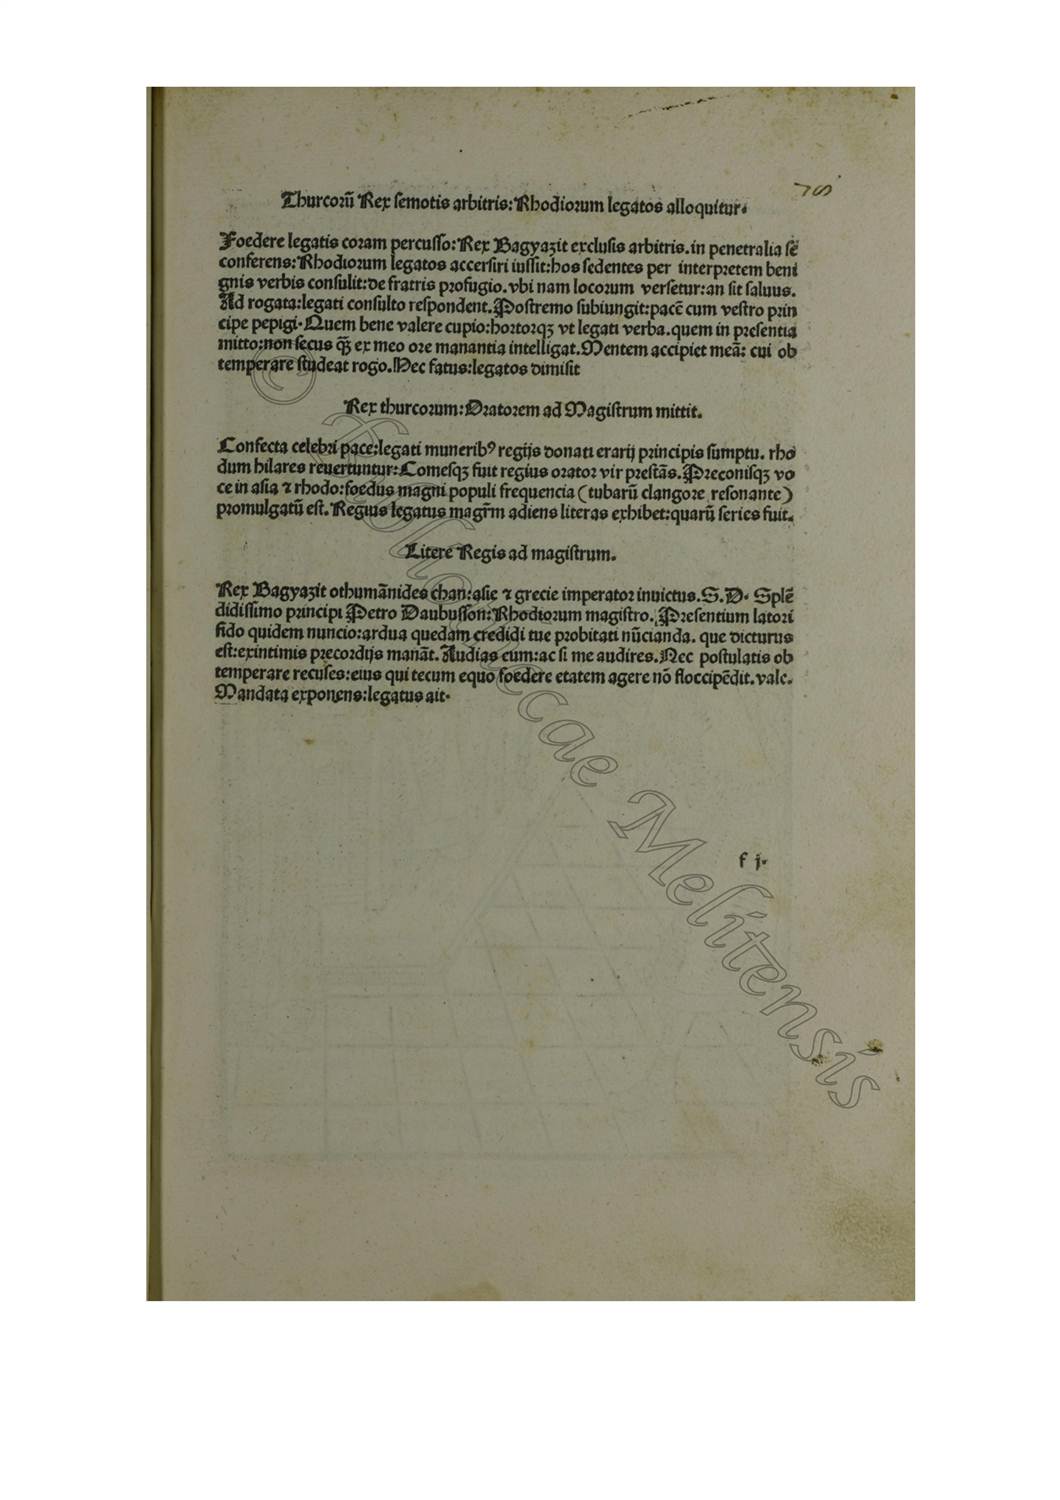 Thurcorũ Rex semotis arbitris: Rhodiorum legatos alloquitur.
Foedere legatis coram percusso: Rex Bagyazit exclusis arbitris. in penetralia sẽ
conferens: Rhodiorum legatos accersiri iussit: hos sedentes per interpretem beni
gnis verbis consulit: de fratris profugio. vbi nam locorum versetur: an sit saluus.
Ad rogata: legati consulto respondent. Postremo subiungit: pacẽ cum vestro prin
cipe pepigi. Quem bene valere cupio: hortorqꝫ vt legati verba. quem in presentia
mitto: non secus qꝫ̃ ex meo ore manantia intelligat. Mentem accipiet meã: cui ob
temperare studeat rogo. Hec fatus: legatos dimisit
Rex thurcorum: Oratorem ad Magistrum mittit.
Confecta celebri pace: legati muneribꝰ regijs donati erarij principis sumptu. rho
dum hilares reuertuntur: Comesqꝫ fuit regius orator vir prestãs. Preconisqꝫ vo
ce in asia ⁊ rhodo: foedus magni populi frequencia (tubarũ clangore resonante)
promulgatũ est. Regius legatus magr̃m adiens literas exhibet: quarũ series fuit.
Litere Regis ad magistrum.
Rex Bagyazit othumãnides chan: asie ⁊ grecie imperator inuictus. S. D. Splẽ
didissimo principi Petro Daubusson: Rhodiorum magistro. Presentium latori
fido quidem nuncio: ardua quedam credidi tue probitati nũcianda. que dicturus
est: exintimis precordijs manãt. Audias eum: ac si me audires. Nec postulatis ob
temperare recuses: eius qui tecum equo foedere etatem agere nõ floccipẽdit. vale.
Mandata exponens: legatus ait.
f j.
© Bibliothecae Melitensis